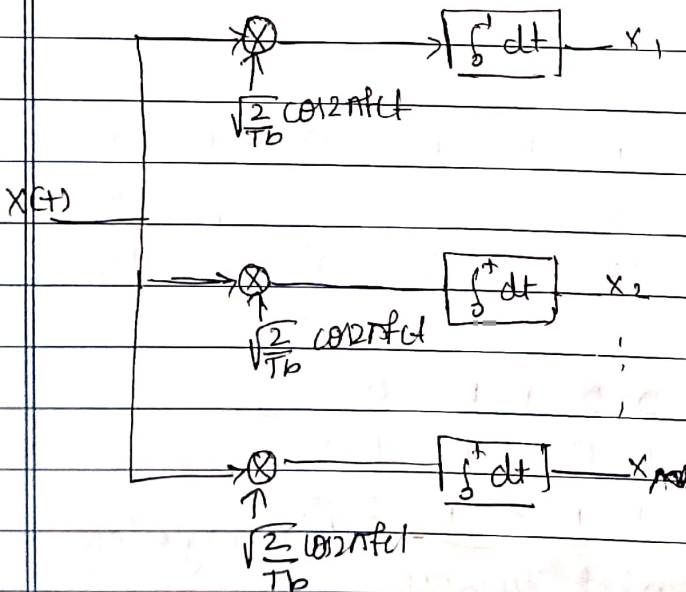 ∫₀ᵗ dt x₁
√(2/Tb) cos2πfct
x(t)
∫₀ᵗ dt x₂
√(2/Tb) cos2πfct
∫₀ᵗ dt x
√(2/Tb) cos2πfct